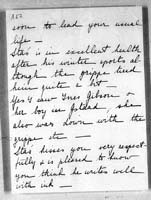 soon to lead your usual
life —
Stas is in excellent health
after his winter sports al
though the grippe tired
him quite a bit —
Yes I saw Ines Gibson &
her boy in Gstaad she
also was down with the
grippe etc —
Stas kisses you very respect-
fully & is pleased to know
you think he writes well
with ink —